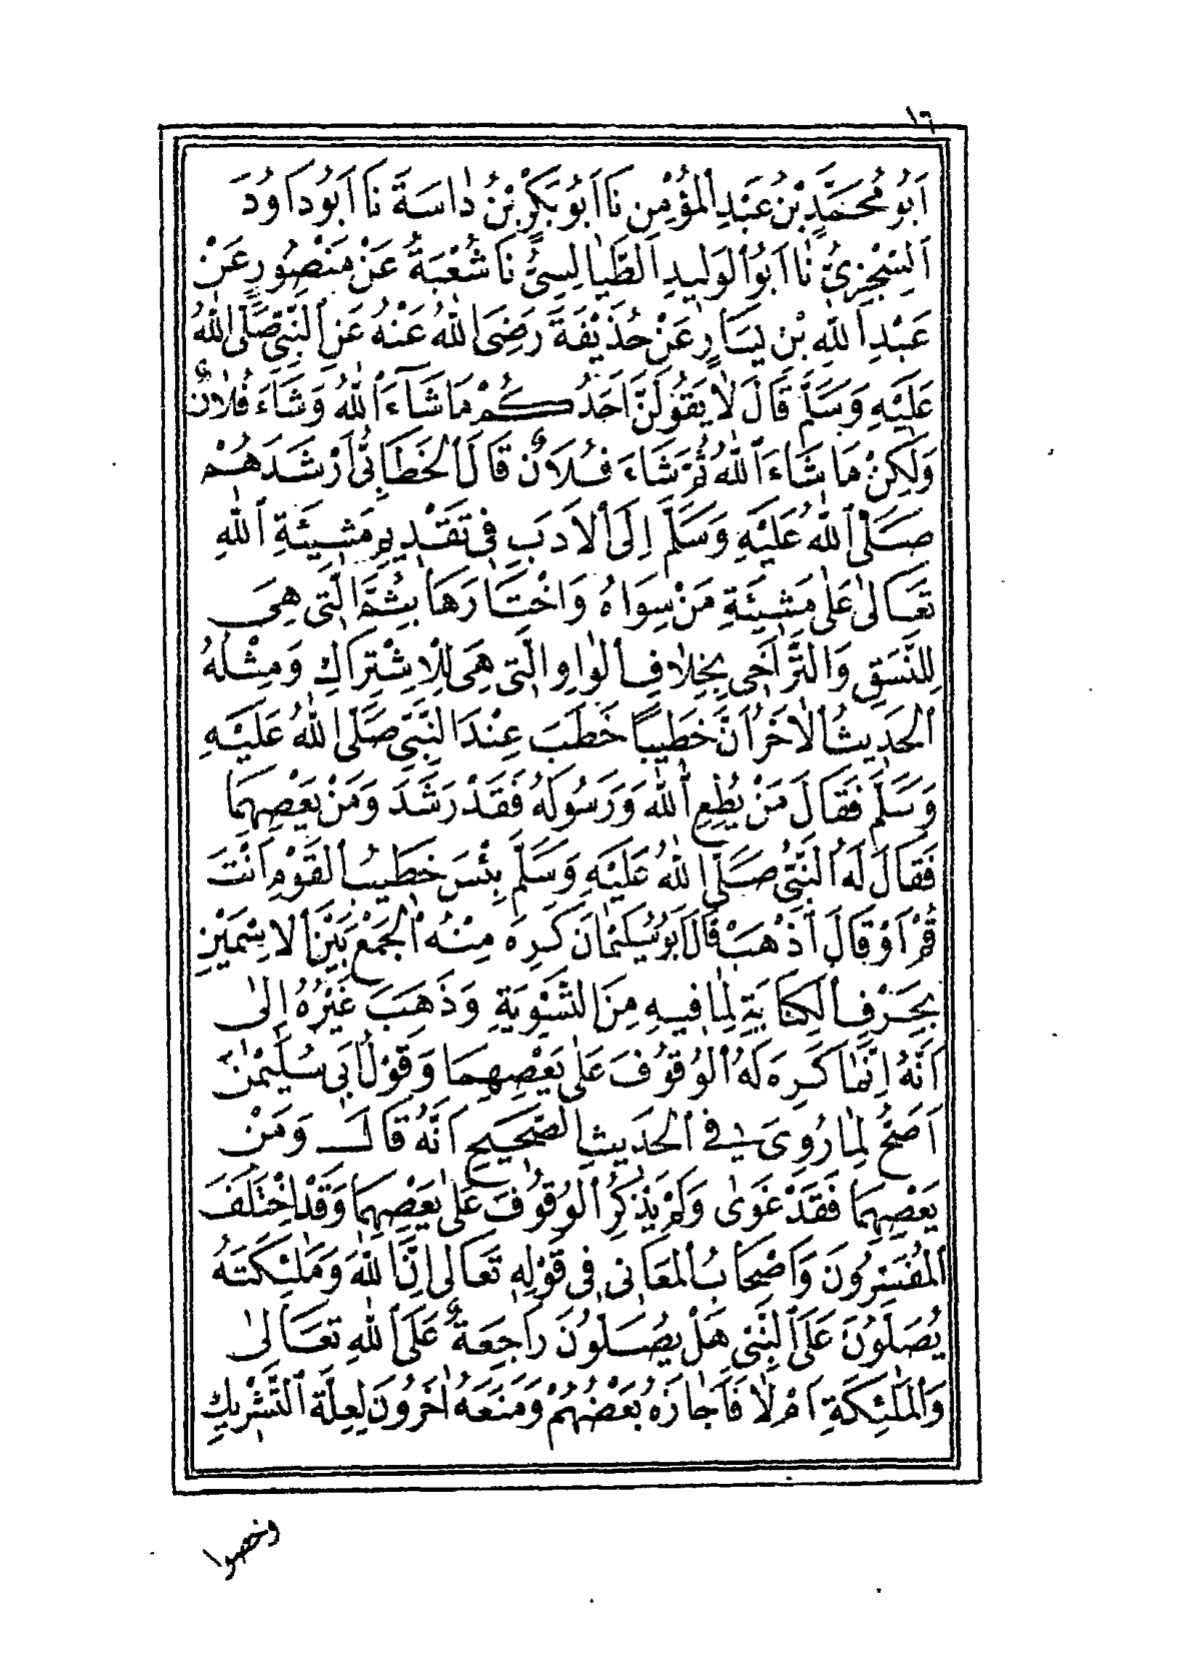 ١٦
اَبُو مُحَمَّدِ بْنُ عَبْدِ الْمُؤْمِنِ نَا اَبُو بَكْرِ بْنُ دَاسَةَ نَا اَبُو دَاوُدَ
السِّجْزِيُّ نَا اَبُو الْوَلِيدِ الطَّيَالِسِيُّ نَا شُعْبَةُ عَنْ مَنْصُورٍ عَنْ
عَبْدِ اللهِ بْنِ يَسَارٍ عَنْ حُذَيْفَةَ رَضِيَ اللهُ عَنْهُ عَنِ النَّبِيِّ صَلَّى اللهُ
عَلَيْهِ وَسَلَّمَ قَالَ لَا يَقُولَنَّ اَحَدُكُمْ مَا شَآءَ اللهُ وَشَاءَ فُلَانٌ
وَلَكِنْ مَا شَاءَ اللهُ ثُمَّ شَاءَ فُلَانٌ قَالَ الْخَطَّابِيُّ اَرْشَدَهُمْ
صَلَّى اللهُ عَلَيْهِ وَسَلَّمَ اِلَى الْاَدَبِ فِي تَقْدِيمِ مَشِيئَةِ اللهِ
تَعَالَى عَلَى مَشِيئَةِ مَنْ سِوَاهُ وَاخْتَارَهَا بِثُمَّ الَّتِي هِيَ
لِلنَّسَقِ وَالتَّرَاخِي بِخِلَافِ الْوَاوِ الَّتِي هِيَ لِلْاِشْتِرَاكِ وَمِثْلُهُ
الْحَدِيثُ الْآخَرُ اَنَّ خَطِيبًا خَطَبَ عِنْدَ النَّبِيِّ صَلَّى اللهُ عَلَيْهِ
وَسَلَّمَ فَقَالَ مَنْ يُطِعِ اللهَ وَرَسُولَهُ فَقَدْ رَشَدَ وَمَنْ يَعْصِهِمَا
فَقَالَ لَهُ النَّبِيُّ صَلَّى اللهُ عَلَيْهِ وَسَلَّمَ بِئْسَ خَطِيبُ الْقَوْمِ اَنْتَ
قُمْ اَوْ قَالَ اذْهَبْ قَالَ اَبُو سُلَيْمَانَ كَرِهَ مِنْهُ الْجَمْعَ بَيْنَ الْاِسْمَيْنِ
بِحَرْفِ الْكِنَايَةِ لِمَا فِيهِ مِنَ التَّسْوِيَةِ وَذَهَبَ غَيْرُهُ اِلَى
اَنَّهُ اِنَّمَا كَرِهَ لَهُ الْوُقُوفَ عَلَى يَعْصِهِمَا وَقَوْلُ اَبِي سُلَيْمٰنَ
اَصَحُّ لِمَا رُوِيَ فِي الْحَدِيثِ الصَّحِيحِ اَنَّهُ قَالَ وَمَنْ
يَعْصِهِمَا فَقَدْ غَوَى وَلَمْ يَذْكُرِ الْوُقُوفَ عَلَى يَعْصِهِمَا وَقَدْ اِخْتَلَفَ
الْمُفَسِّرُونَ وَاَصْحَابُ الْمَعَانِي فِي قَوْلِهِ تَعَالَى اِنَّ اللهَ وَمَلٰئِكَتَهُ
يُصَلُّونَ عَلَى النَّبِيِّ هَلْ يُصَلُّونَ رَاجِعَةٌ عَلَى اللهِ تَعَالَى
وَالْمَلٰئِكَةِ اَمْ لَا فَاَجَازَهُ بَعْضُهُمْ وَمَنَعَهُ اٰخَرُونَ لِعِلَّةِ التَّشْرِيكِ
وخصوا